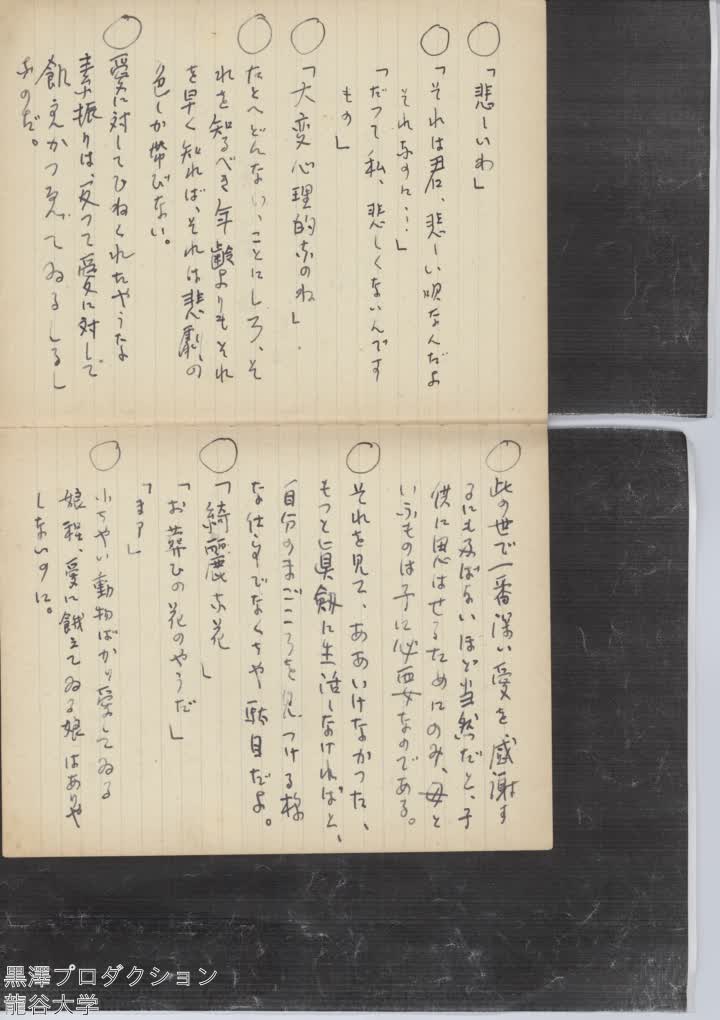 ○「悲しいわ」
○「それは君、悲しい唄なんだよ
それなのに…」
「だつて私、悲しくないんです
もの」
○「大変心理的なのね」
○たとへどんない、ことにしろ、そ
れを知るべき年齢よりもそれ
を早く知れば、それは悲劇の
色しか帯びない。
○愛に対してひねくれたやうな
素振りは、反つて愛に対して
飢えかつゑてゐるしるし
なのだ。
○此の世で一番深い愛を、感謝す
るにも及ばないほど当然だと、子
供に思はせるためにのみ、母と
いふものは子に必要なのである。
○それを見て、ああいけなかつた、
もつと眞劔に生活しなければと、
自分のまごころを見つける様
な仕事でなくちや駄目だよ。
○「綺麗な花」
「お葬ひの花のやうだ」
「まア」
○小ちやい動物ばかり愛してゐる
娘程、愛に餓えてゐる娘はありや
しないのに。
黒澤プロダクション
龍谷大学